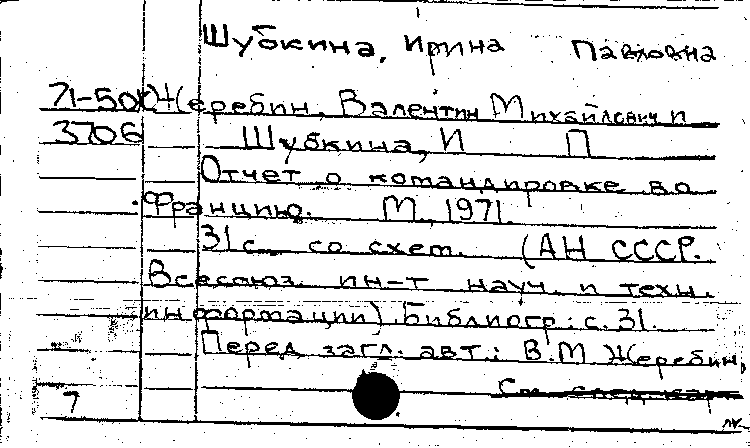 Шубкина, Ирина Павловна
71-50Ю Жеребин, Валентин Михайлович и
3706 Шубкина, И П
Отчет о командировке во
Францию. М., 1971.
31 с. со схем. (АН СССР.
Всесоюз. ин-т науч. и техн.
информации). Библиогр.: с. 31.
Перед загл. авт.: В.М Жеребин,
См. след. карт
7